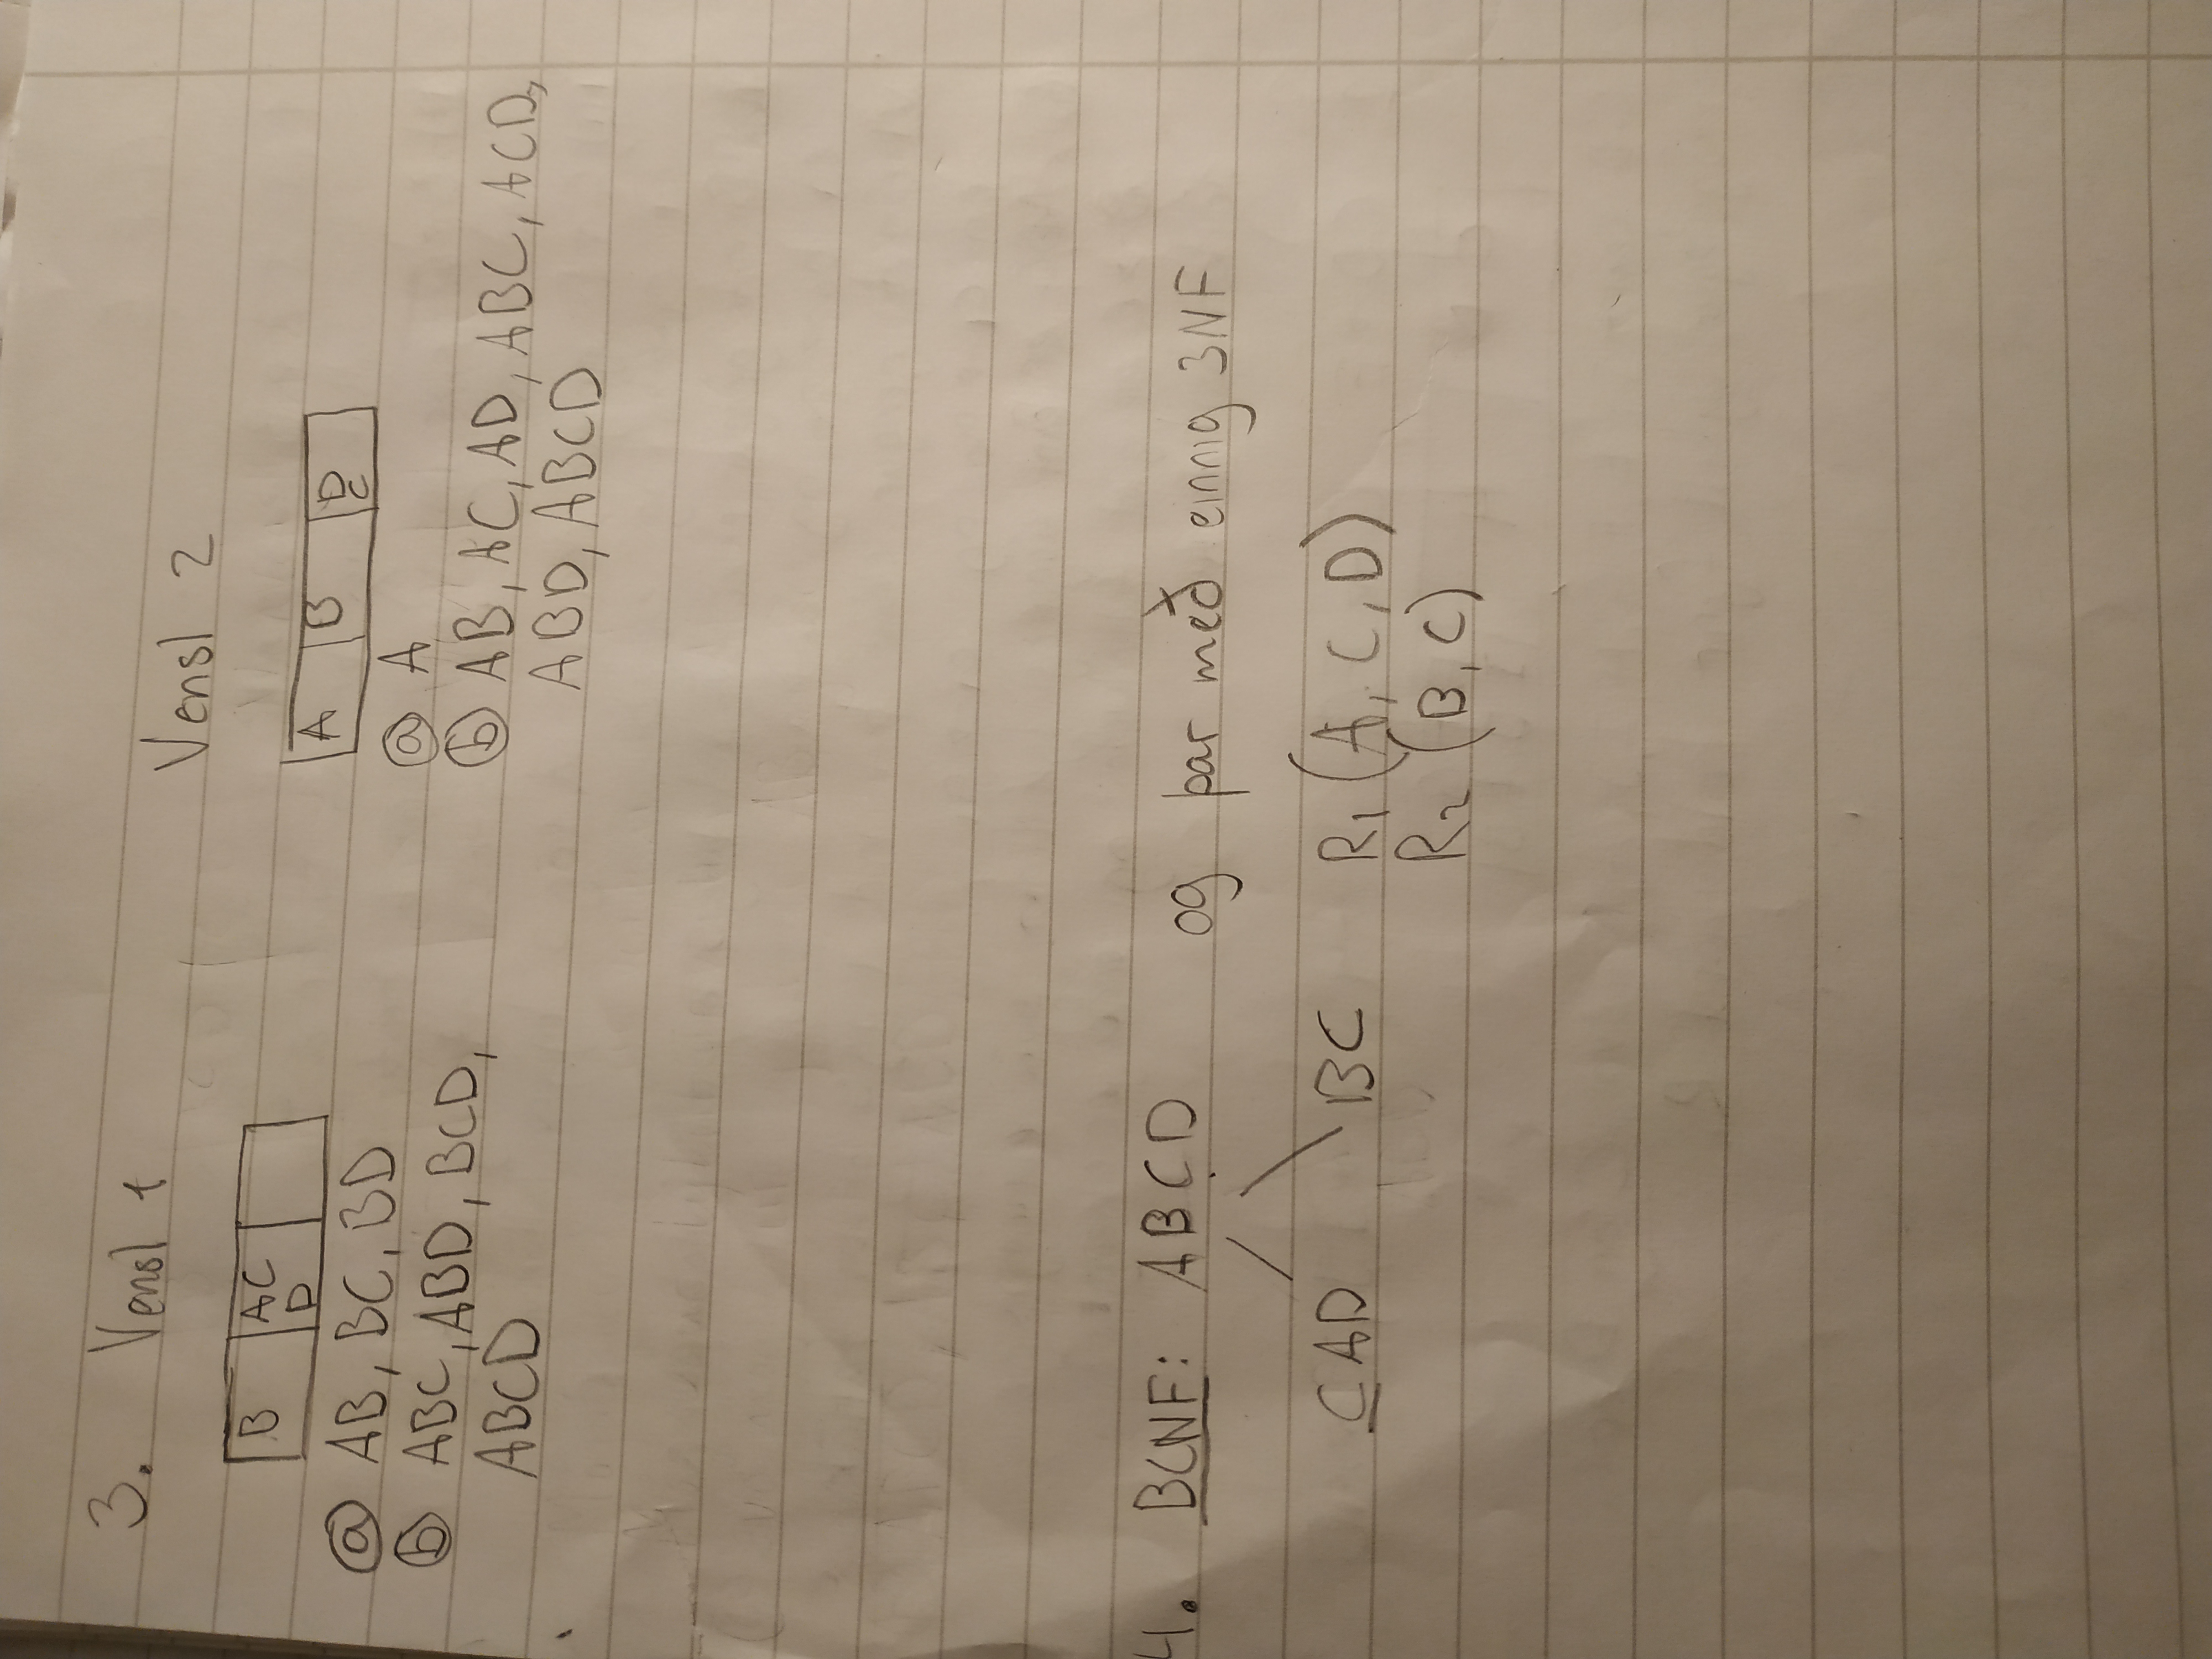 3. Vensl 1
B AC
D
ⓐ AB, BC, BD
ⓑ ABC, ABD, BCD,
ABCD
Vensl 2
A B D
C
ⓐ A
ⓑ AB, AC, AD, ABC, ACD,
ABD, ABCD
4. BCNF: ABCD og þar með einnig 3NF
CAD BC R1 (A, C, D)
R2 (B, C)